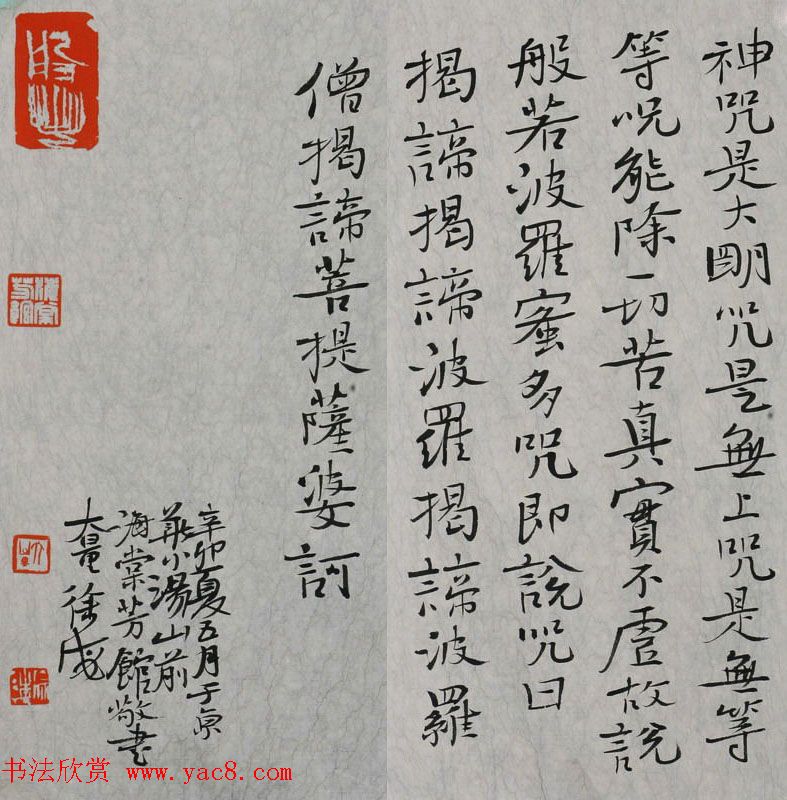 神咒是大朙咒是無上咒是無等
等咒能除一切苦真實不虛故說
般若波羅蜜多咒即說咒曰
揭諦揭諦波羅揭諦波羅
僧揭諦菩提薩婆訶
辛卯夏五月于京
小湯山前
海棠芳館敬書
大徐
海棠芳館
书法欣赏 www.yac8.com